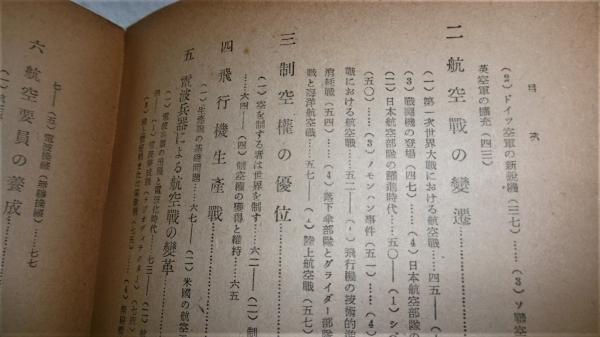 目次
(2) ドイツ空軍の新鋭機 (三七)……(3) ソ聯空
英空軍の擴充 (四三)
二 航空戰の變遷
(一) 第一次世界大戰における航空戰……四五――(1)
(3) 戰鬪機の登場 (四七)……(4) 日本航空部隊
(二) 日本航空部隊の躍進時代……五〇――(1) シベ
(五〇)……(3) ノモンハン事件 (五一)……(4)
戰における航空戰……五二――
飛行機の技術的進
(五四)……(4) 落下傘部隊とグライダー部隊
戰と海洋航空戰……五七――
陸上航空戰 (五七)
三 制空權の優位
(一) 空を制する者は世界を制す……六二――(二) 制
……六四――(四) 制空權の獲得と維持……六五
四 飛行機生產戰
(一) 生產戰の基礎問題……六七――(二) 米國の航空工
五 電波兵器による航空戰の變革
(一) 電波兵器の出現と電波化時代……七三――(二)
七――(五) 電波技術
……七七
六 航空要員の養成